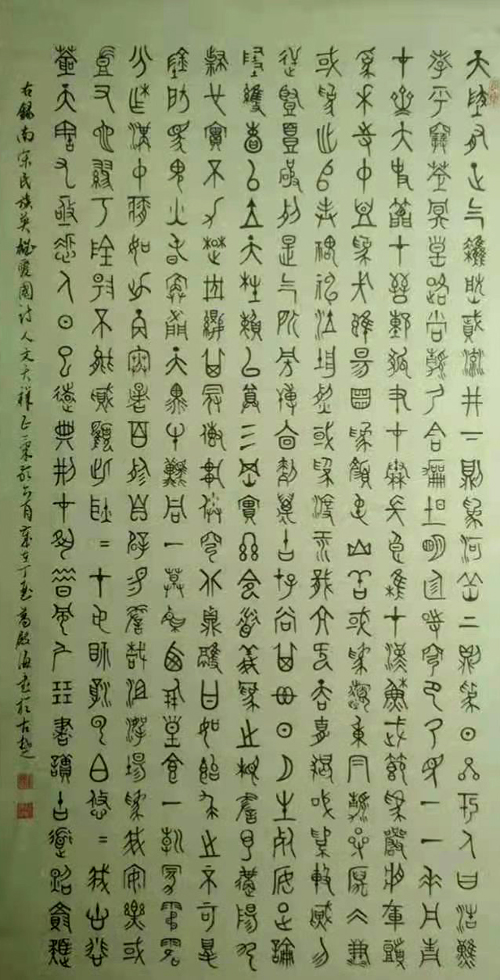 天地有正氣雜然賦流形下則為河嶽上則為日星於人曰浩然
沛乎塞蒼冥皇路當清夷含和吐明庭時窮節乃見一一垂丹青
在齊太史簡在晉董狐筆在秦張良椎在漢蘇武節為嚴將軍頭
為嵇侍中血為張睢陽齒為顏常山舌或為遼東帽清操厲冰雪
或為出師表鬼神泣壯烈或為渡江楫慷慨吞胡羯或為擊賊笏
逆豎頭破裂是氣所磅礴凜烈萬古存當其貫日月生死安足論
地維賴以立天柱賴以尊三綱實繫命道義為之根嗟予遘陽九
隸也實不力楚囚纓其冠傳車送窮北鼎鑊甘如飴求之不可得
陰房闃鬼火春院閟天黑牛驥同一皂雞棲鳳凰食一朝蒙霧露
分作溝中瘠如此再寒暑百沴自辟易嗟哉沮洳場為我安樂國
豈有他繆巧陰陽不能賊顧此耿耿在仰視浮雲白悠悠我心悲
蒼天曷有極哲人日已遠典刑在夙昔風簷展書讀古道照顏色
右錄南宋民族英雄愛國詩人文天祥正氣歌歲在丁亥殷海書於古越